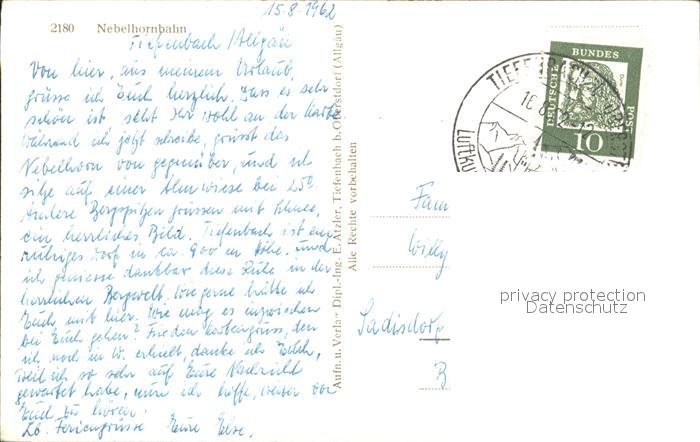 15.8.1962
2180 Nebelhornbahn
Tiefenbach / Allgäu
Von hier, aus meinem Urlaub,
grüsse ich Euch herzlich. Dass es sehr
schön ist seht Ihr wohl an der Karte
während ich jetzt schreibe, grüsst das
Nebelhorn von gegenüber, und ich
sitze auf einer Almwiese bei 25°.
Andere Bergspitzen grüssen mit Schnee,
ein herrliches Bild. Tiefenbach ist ein
ruhiges Dorf in ca. 900 m Höhe. und
ich geniesse dankbar diese Ruhe in der
herrlichen Bergwelt. Wie gerne hätte ich
Euch mit hier. Wie mag es inzwischen
bei Euch gehen? Für den Kartengruss, den
ich noch in W. erhielt, danke ich Euch,
weil ich so sehr auf Eure Nachricht
gewartet habe, nun ich hoffe, weiter von
Euch zu hören.
Lb. Feriengrüsse Eure Else.
Aufn.u. Verlag Dipl.-Ing. E. Atzler, Tiefenbach b. Oberstdorf (Allgäu)
Alle Rechte vorbehalten
TIEFENBACH
16.8.
LUFTKU
DEUTSCHE BUNDES POST
10
Fam
Willy
Sadisdorf
privacy protection
Datenschutz